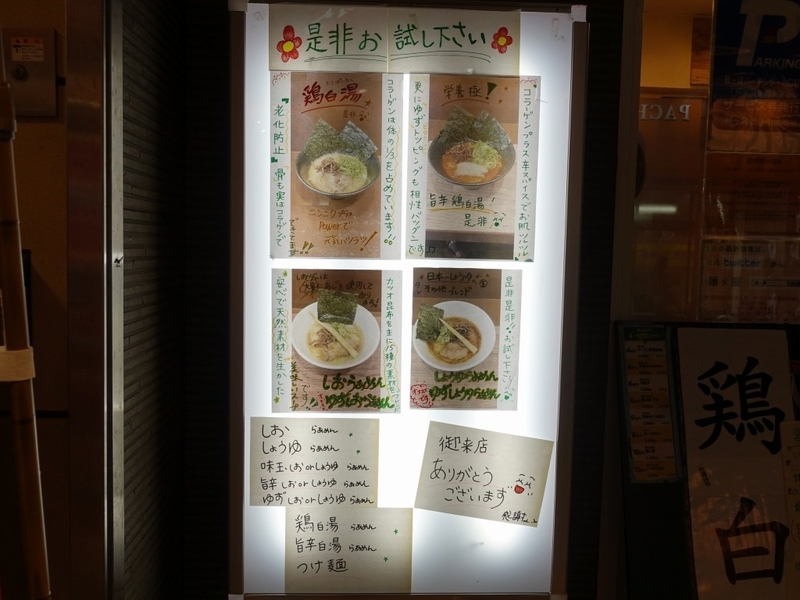 是非お試し下さい
鶏白湯
是非
コラーゲンは体の1/3を占めています!!
『老化防止』骨も実はコラーゲンで
できてます!!
ニンニクプラス
Powerで
元気ハツラツ!
栄養極!
コラーゲンプラス辛スパイスでお肌ツルツル
更にゆずトッピングも相性バツグンです
旨辛鶏白湯!
是非
カツオ昆布を主に15種の素材を
安心で天然素材を生かした
美味しいスープです!!
しおらぁめん
ゆずしおらぁめん
日本一しょう油
その他ブレンド
是非是非!!お試し下さい
しょうゆらぁめん
ゆずしょうゆらぁめん
しお らぁめん
しょうゆ らぁめん
味玉、しおorしょうゆ らぁめん
旨辛 しおorしょうゆ らぁめん
ゆず しおorしょうゆ らぁめん
鶏白湯 らぁめん
旨辛白湯 らぁめん
つけ麺
御来店
ありがとう
ございます
P
PARKING
twitter
鶏
白